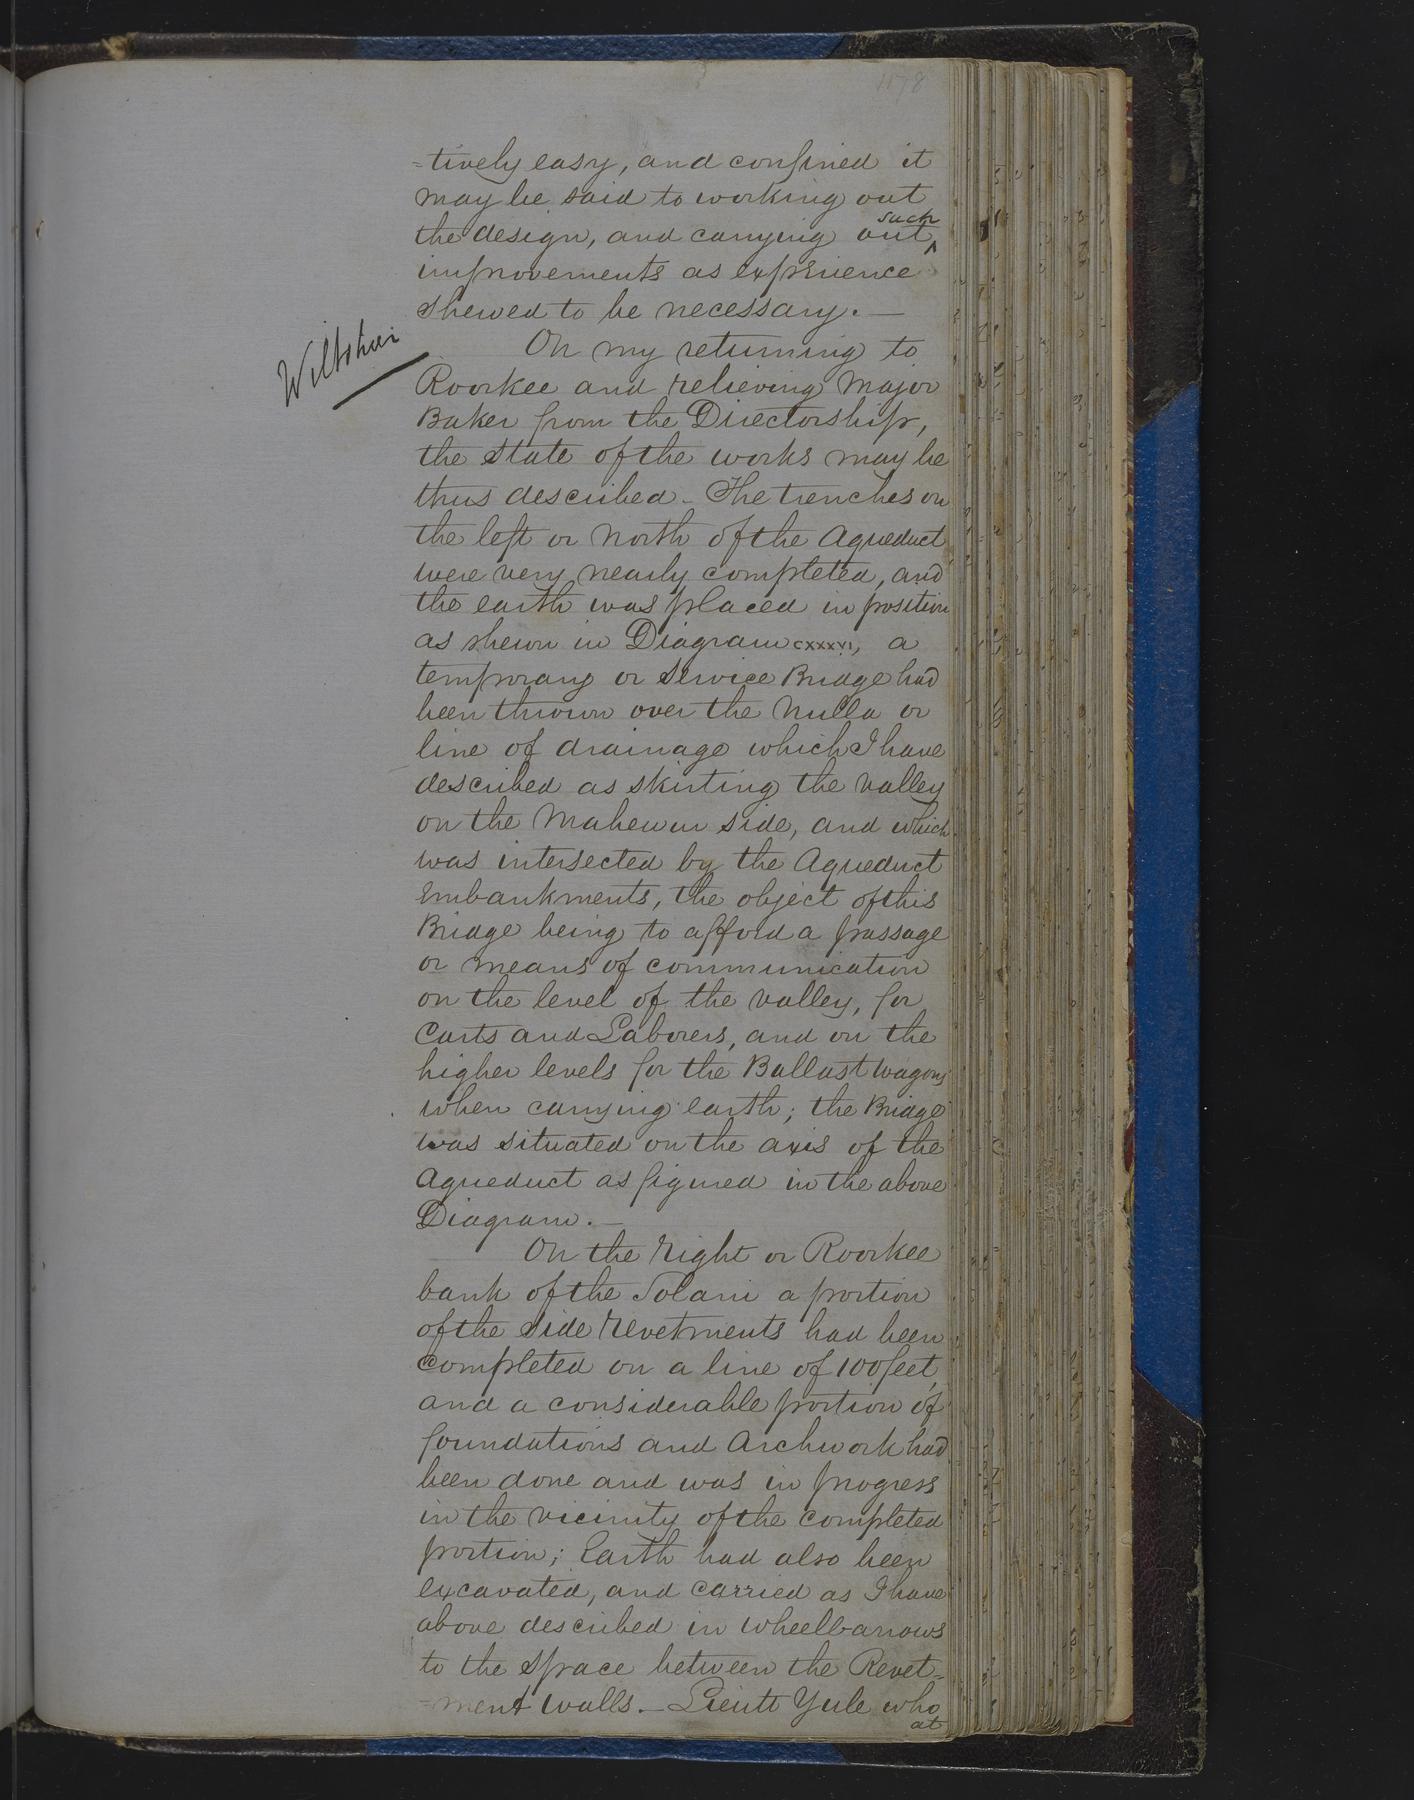 1178
=tively easy, and confined it
may be said to working out
the design, and carrying out, such
improvements as experience
shewed to be necessary. —
Wiltshire
On my returning to
Roorkee and relieving Major
Baker from the Directorship,
the state of the works may be
thus described – The trenches on
the left or North of the Aqueduct
were very nearly completed, and
the earth was placed in position
as shewn in Diagram CXXXVI, a
temporary or Service Bridge had
been thrown over the Nulla or
line of drainage which I have
described as skirting the valley
on the Mahewur side, and which
was intersected by the Aqueduct
Embankments, the object of this
Bridge being to afford a passage
or means of communication
on the level of the valley, for
Carts and Laborers, and on the
higher levels for the Ballast wagons
when carrying earth; the Bridge
was situated on the axis of the
Aqueduct as figured in the above
Diagram. —
On the right or Roorkee
bank of the Solani a portion
of the Side Revetments had been
completed on a line of 100 feet,
and a considerable portion of
foundations and Archwork had
been done and was in progress
in the vicinity of the completed
portion; Earth had also been
excavated, and carried as I have
above described in wheelbarrows
to the space between the Revet-
=ment walls. – Lieutt Yule who
at